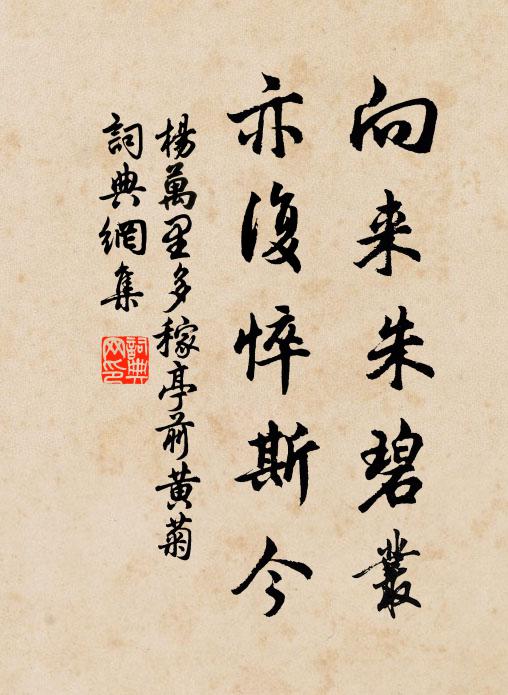 向来朱碧叢
亦復悴斯今
楊萬里多稼亭前黃菊
詞典網集
詞典網印